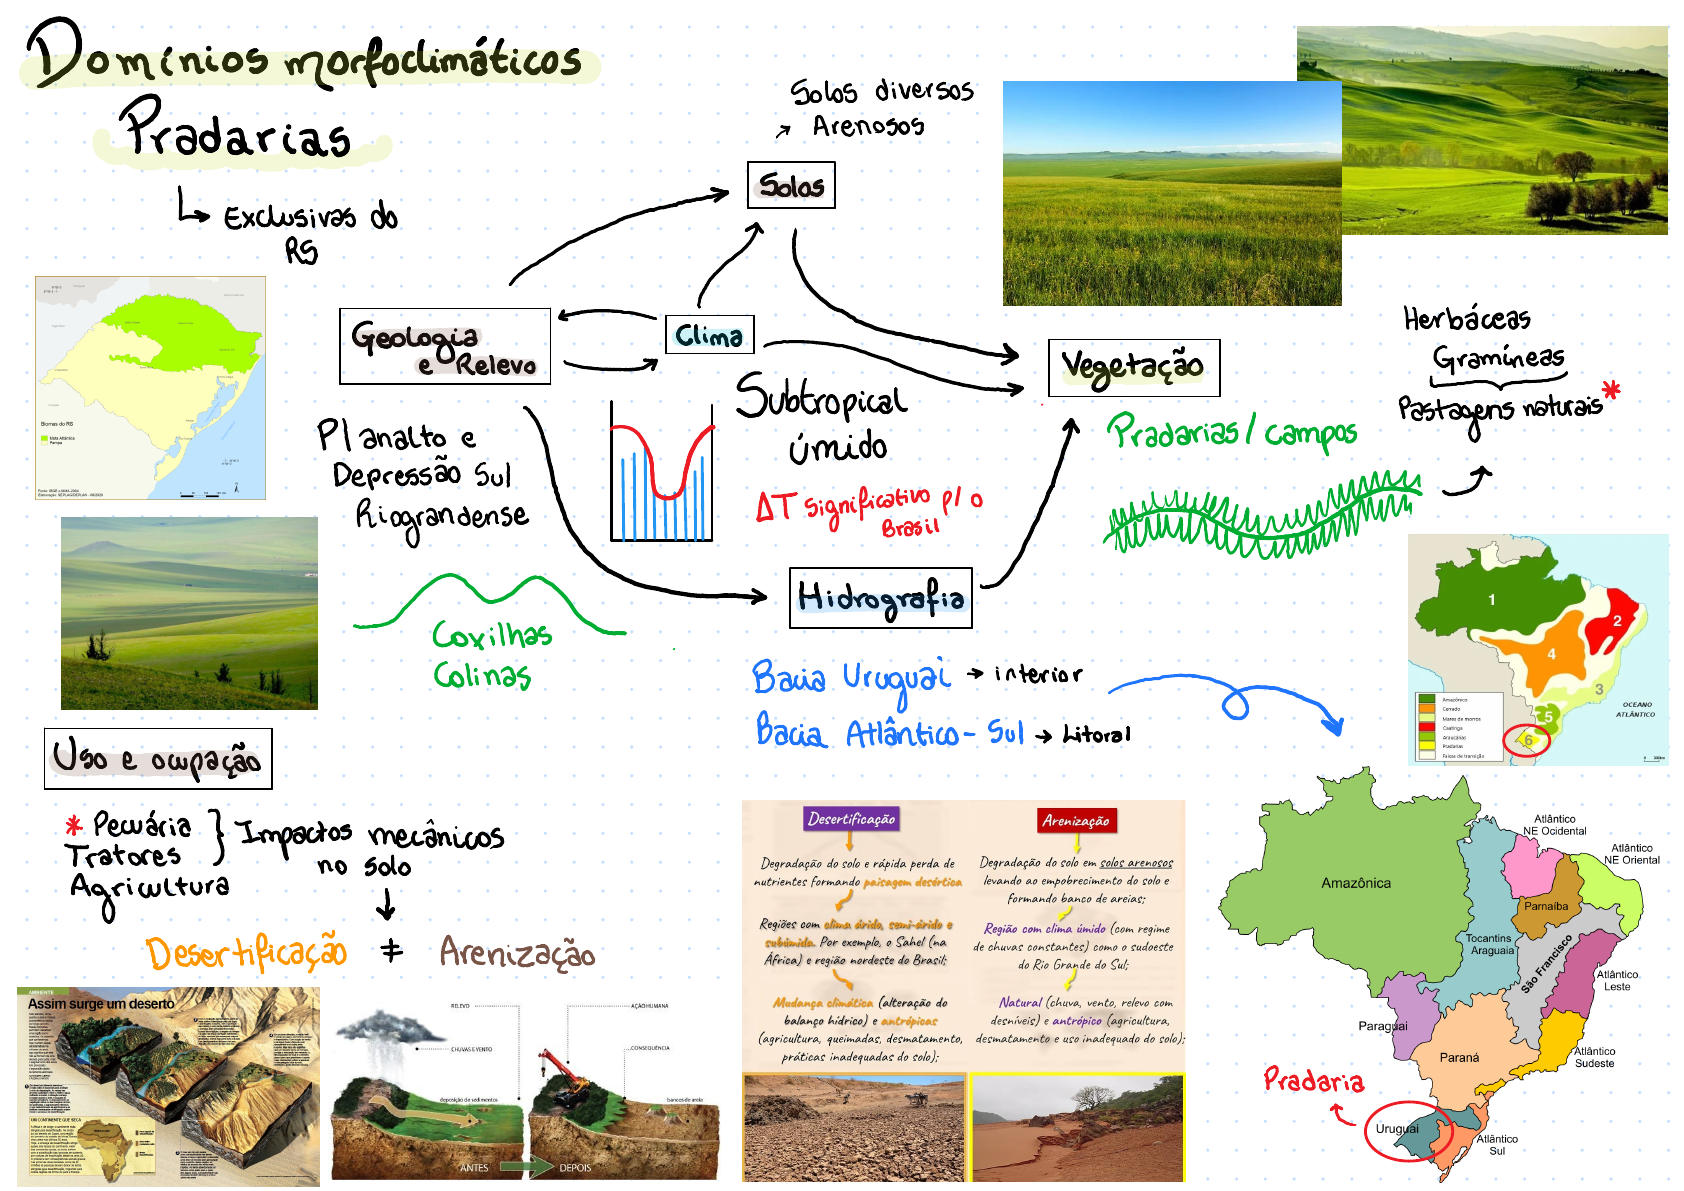 Domínios morfoclimáticos
Pradarias
Exclusivas do
RS
Solos diversos
Arenosos
Solos
Geologia
e Relevo
Clima
Vegetação
Herbáceas
Gramíneas
Pastagens naturais *
Planalto e
Depressão Sul
Riograndense
Subtropical
úmido
ΔT significativo p/ o
Brasil
Pradarias / campos
Biomas do RS
Mata Atlântica
Pampa
Coxilhas
Colinas
Hidrografia
Bacia Uruguai → interior
Bacia Atlântico - Sul → Litoral
1
2
3
4
5
6
OCEANO
ATLÂNTICO
Amazônico
Cerrado
Mares de morros
Caatinga
Araucárias
Pradarias
Faixas de transição
Uso e ocupação
* Pecuária
Tratores
Agricultura
Impactos mecânicos
no solo
Desertificação ≠ Arenização
AMBIENTE
Assim surge um deserto
UM CONTINENTE QUE SECA
RELEVO
CHUVAS E VENTO
deposição de sedimentos
AÇÃO HUMANA
CONSEQUÊNCIA
bancos de areia
ANTES
DEPOIS
Desertificação
Degradação do solo e rápida perda de
nutrientes formando paisagem desértica
Regiões com clima árido, semi-árido e
subúmido. Por exemplo, o Sahel (na
África) e região nordeste do Brasil;
Mudança climática (alteração do
balanço hídrico) e antrópicas
(agricultura, queimadas, desmatamento,
práticas inadequadas do solo);
Arenização
Degradação do solo em solos arenosos
levando ao empobrecimento do solo e
formando banco de areias;
Região com clima úmido (com regime
de chuvas constantes) como o sudoeste
do Rio Grande do Sul;
Natural (chuva, vento, relevo com
desníveis) e antrópico (agricultura,
desmatamento e uso inadequado do solo);
Atlântico
NE Ocidental
Atlântico
NE Oriental
Amazônica
Parnaíba
Tocantins
Araguaia
São Francisco
Atlântico
Leste
Paraguai
Paraná
Atlântico
Sudeste
Pradaria
Uruguai
Atlântico
Sul